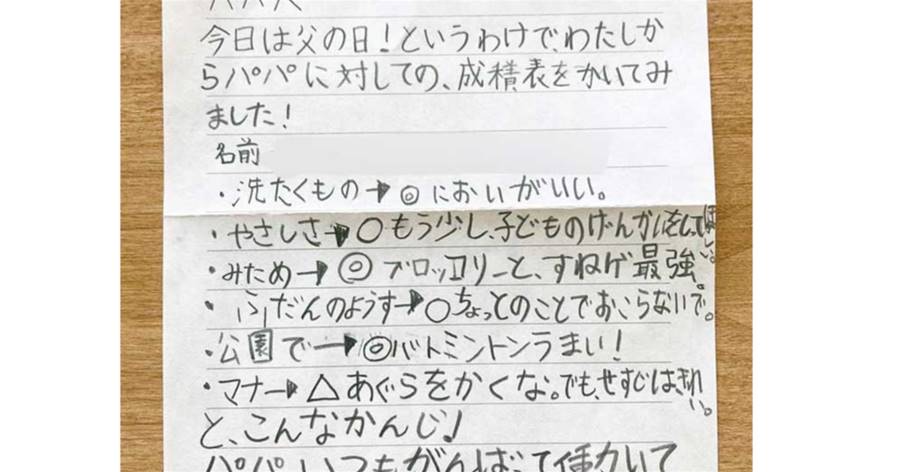 今日は父の日!というわけで、わたしか
らパパに対しての、成積表をかいてみ
ました!
名前
・洗たくもの→◎においがいい。
・やさしさ→○もう少し、子どものげんかいをしってほしい。
・みため→◎ブロッコリーと、すねゲ最強。
・ふだんのようす→○ちょっとのことでおこらないで。
・公園で→◎バトミントンうまい!
・マナー→△あぐらをかくな。でも、せすじはきれい。
と、こんなかんじ♪
パパいつもがんばって働いて